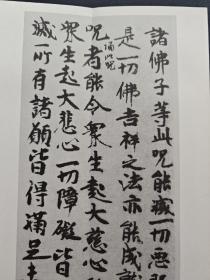 諸佛子等此咒能滅一切惡
是一切佛吉祥之法亦能成
誦此咒
咒者能令眾生起大慈心
眾生起大悲心一切障礙皆
滅所有諸願皆得滿足